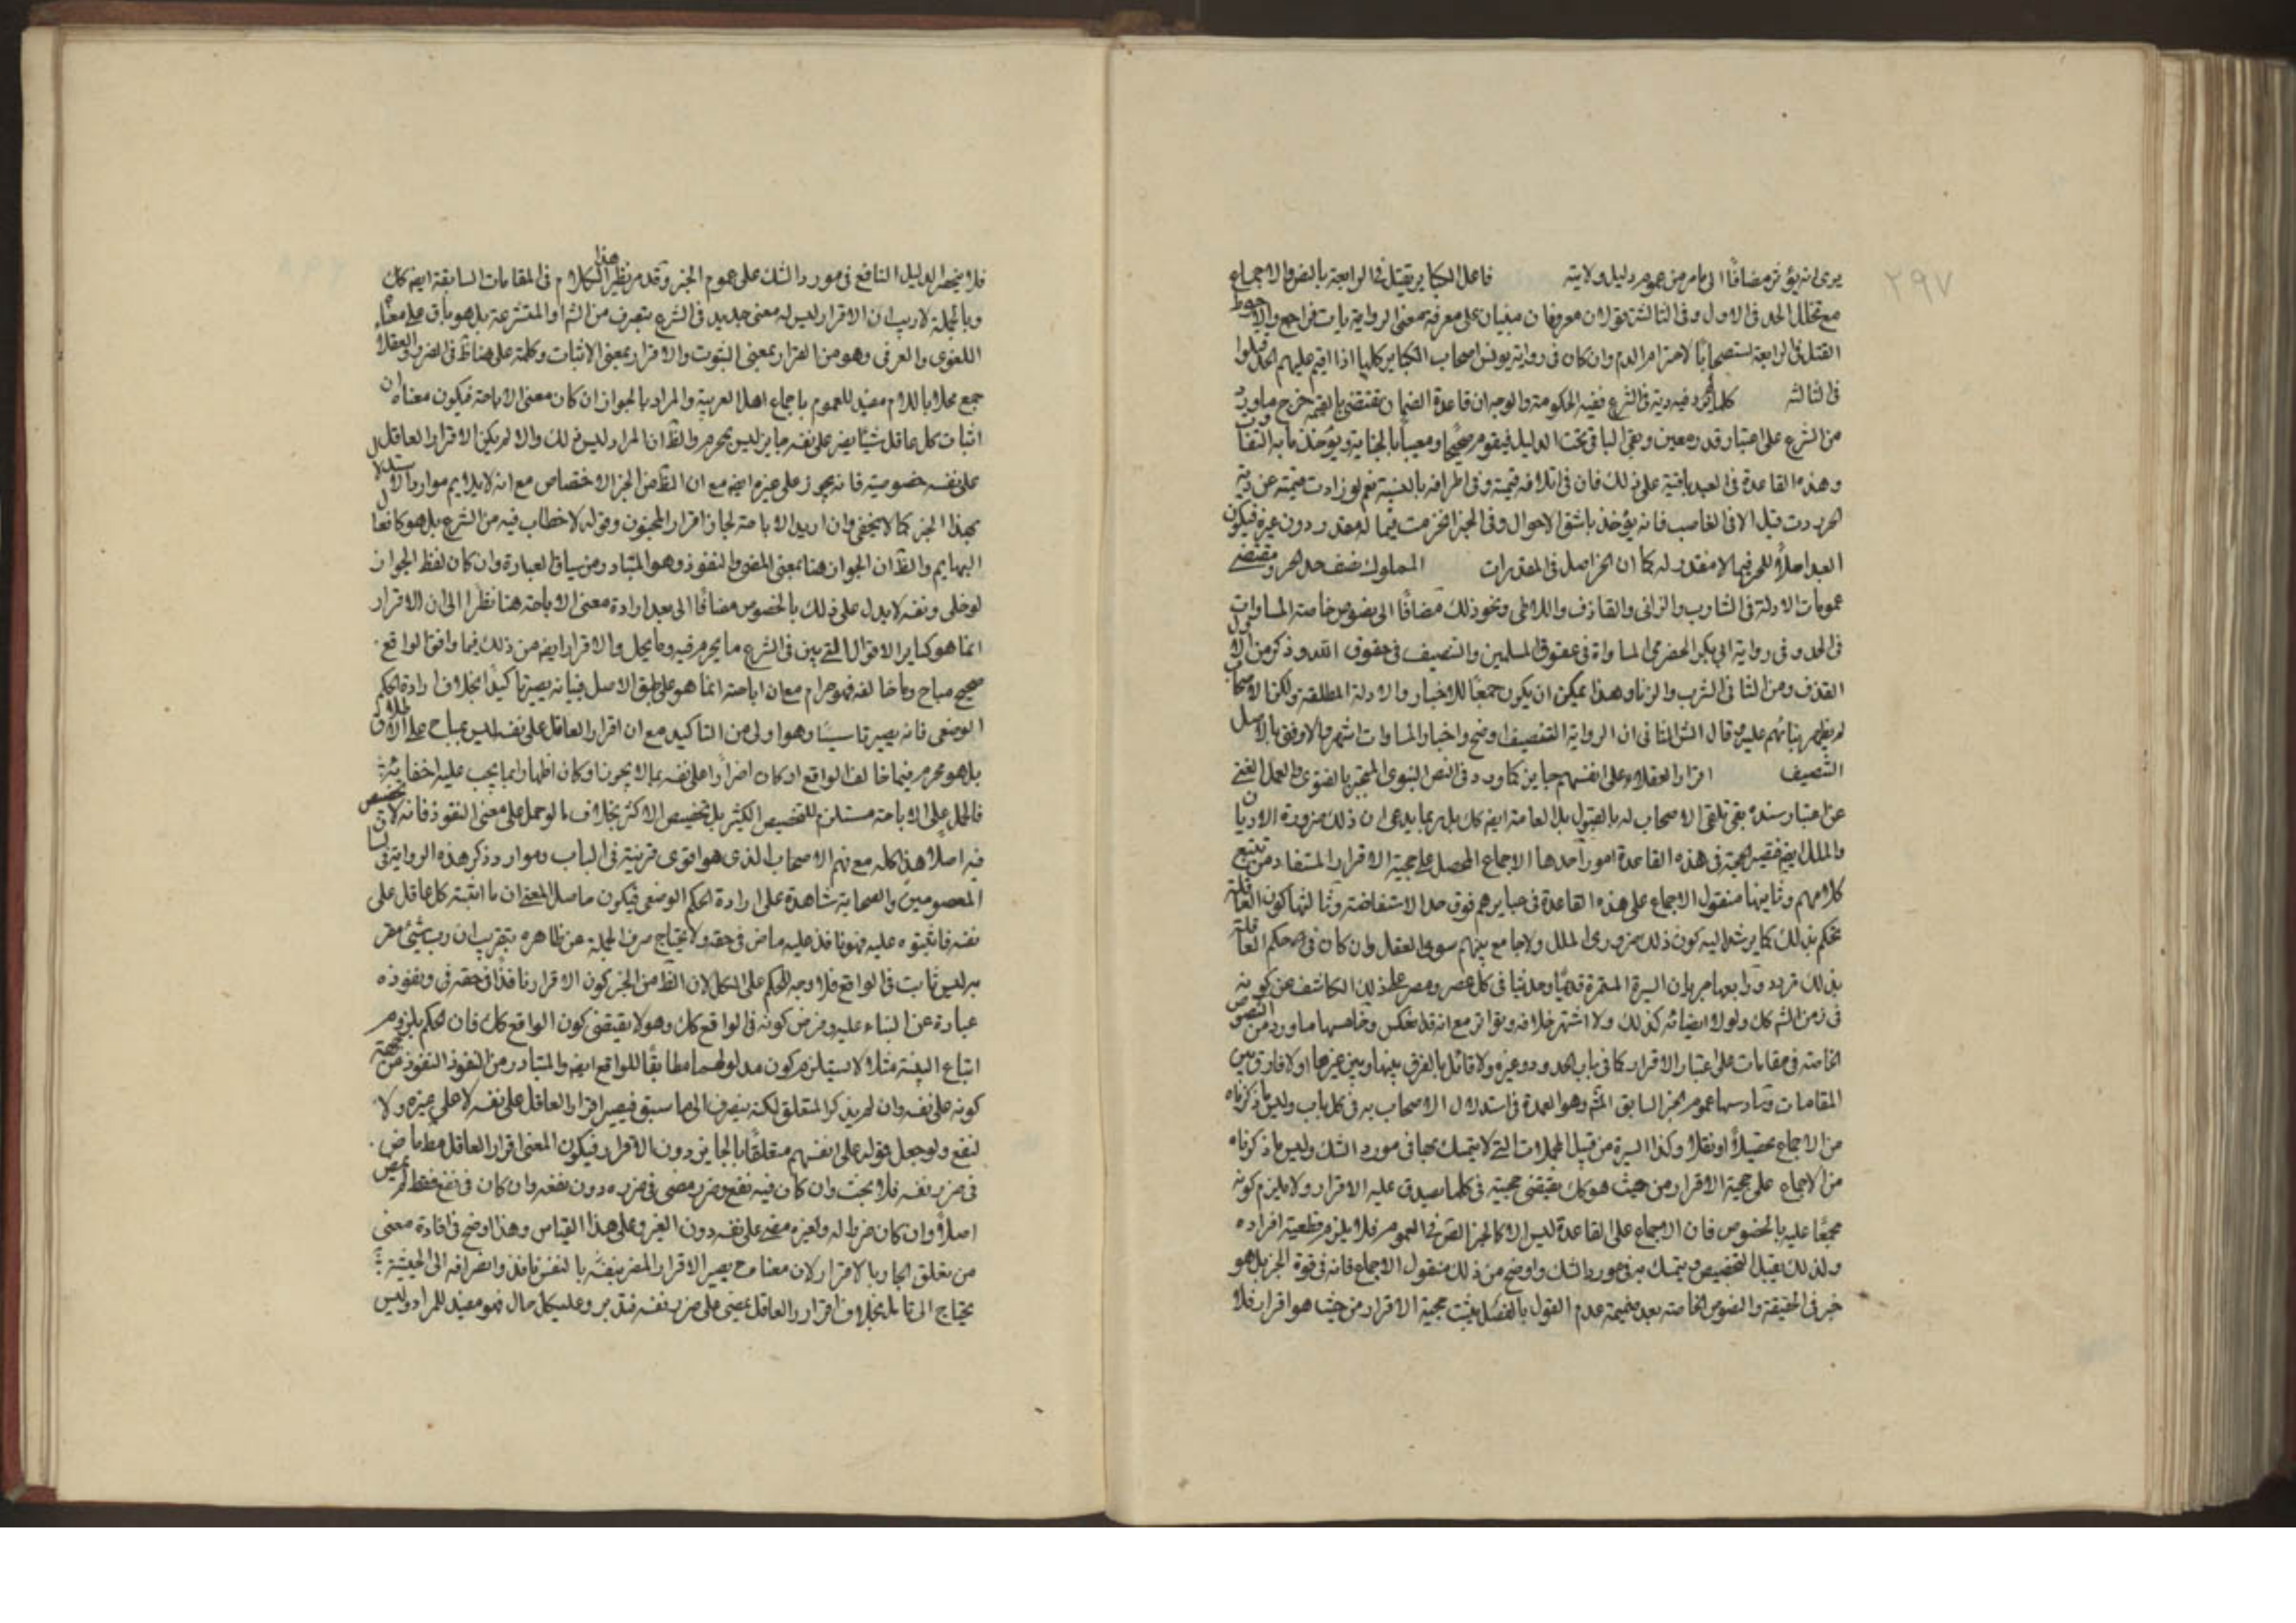 ٢٩٧
يرى انه يؤثر مضافًا الى ما مر من عموم دليل ولايته فاعل الكباير يقتل فى الرابعة بالنص والاجماع
مع تخلل الحد فى الاول وفى الثالثة قولان معروفان مبنيان على معرفة معنى الرواية فراجع والاحوط
القتل فى الرابعة استصحابًا لاحترام الدم وان كان فى رواية يونس اصحاب الكباير كلها اذا اقيم عليهم الحد قتلوا
فى الثالثه كلما لم يرد فيه دية فى الشرع ففيه الحكومة والوجه ان قاعدة الضمان تقتضى بالقيمه خرج ما ورد
من الشرع على اعتبار قدر معين وبقى الباقى تحت الدليل فيقوم صحيحًا ومعيبًا بالجناية ويؤخذ ما به التفاوت
وهذه القاعدة فى العبد باقية على ذلك فان فى اتلافه قيمته وفى اطرافه بالنسبة نعم لو زادت قيمته عن دية
الحر ردت قبل الا فى الغاصب فانه يؤخذ باشق الاحوال وفى الجزء الجزء من فيما له مقدر دون غيره فيكون
العبد اصلًا للحر فيما لا مقدر له كما ان الحر اصل فى المقدرات المملوك نصف حد الحر ومقتضى
عمومات الادلة فى الشارب والزانى والقاذف واللاطى ونحو ذلك مضافًا الى نصوص خاصة المساوات
فى الحد وفى رواية ابى بكر الحضرمى المساواة فى حقوق المسلمين والتنصيف فى حقوق الله وذكر من الاول
القذف ومن الثانى الشرب والزنا وهذا يمكن ان يكون جمعًا للاخبار والادلة المطلقة ولكن الاصحاب
لم يظهر بناءهم عليه قال الش الثانى ان الرواية التنصيف اوضح واخبار المساوات اشهر والاوفق بالاصل
التنصيف اقرار العقلاء على انفسهم جايز كما ورد فى النص النبوى المنجبر بالفتوى والعمل الغنى
عن اعتبار سنده بقى تلقى الاصحاب له بالقبول بل العامة ايضه كك بل ربما يدعى ان ذلك ضرورة الاديان
والملل ايضه فقضية الحجة فى هذه القاعدة امور احدها الاجماع المحصل على حجية الاقرار المستفاد من تتبع
كلامهم وثانيها منقول الاجماع على هذه القاعدة فى عبايرهم فوق حد الاستفاضة وثالثها كون العقل
يحكم بذلك كما يرشد اليه كون ذلك ضرورى الملل ولا جامع بينهم سوى العقل وان كان فى حكم العقل
بذلك تردد ورابعها جريان السيرة المستمرة قديمًا وحديثًا فى كل عصر ومصر على ذلك الكاشف عن كونه
فى زمن الشم كك ولولا امضائه كذلك ولا اشتهر خلافه وتواتر مع انه قد انعكس وخامسها ما ورد من النصوص
الخاصة فى مقامات على اعتبار الاقرار كما فى باب الحدود وغيره ولا قائل بالفرق بينها وبين غيرها اولا فارق بين
المقامات وسادسها عموم الخبر السابق الثم وهو العمدة فى استدلال الاصحاب به فى كل باب وليس ما ذكرناه
من الاجماع تحصيلًا او نقلًا وكذا السيرة من قبيل المجملات التى لا يتمسك بها فى مورد الشك وليس ما ذكرناه
من الاجماع على حجية الاقرار من حيث هو كك يقتضى حجيته فى كلما يصدق عليه الاقرار ولا يلزم كونه
مجمعًا عليه بالخصوص فان الاجماع على القاعدة ليس الا كالخبر الصريح فى العموم فلا يلزم قطعية افراده
ولذلك يقبل التخصيص ويتمسك به فى مورد الشك واوضح من ذلك منقول الاجماع فانه فى قوة الخبر بل هو
خبر فى الحقيقة والنصوص الخاصة بعد ضميمة عدم القول بالفصل يثبت حجية الاقرار من حيث هو اقرار فلا
فلا ينحصر الدليل النافع فى مورد الشك على عموم الخبر وقد مر نظير هذا الكلام فى المقامات السابقة ايضه كك
وبالجملة لا ريب ان الاقرار ليس له معنى جديد فى الشرع بتصرف من الشم او المتشرعة بل هو باق على معناه
اللغوى والعرفى وهو من القرار بمعنى الثبوت والاقرار بمعنى الاثبات وكلمة على هنا ظ فى الضرر والعقلاء
جمع محلا باللام مفيد للعموم باجماع اهل العربية والمراد بالجواز ان كان معنى الاباحة فيكون معناه ان
اثبات كل عاقل شيئًا يضر على نفسه جايز ليس بمحرم والظ ان المراد ليس ذلك والا لم يكن لاقرار العاقل
على نفسه خصوصية فانه يجوز على غيره ايضه مع ان الظ من الخبر الاختصاص مع انه لا يلايم موارد الاستدلال
بهذا الخبر كما لا يخفى وان اريد الاباحة لجاز اقرار المجنون وقوله لا خطاب فيه من الشرع بل هو كافعال
البهايم والظ ان الجواز هنا بمعنى المضى والنفوذ وهو المتبادر من سياق العبارة وان كان لفظ الجواز
لو خلى ونفسه لا يدل على ذلك بالخصوص مضافًا الى بعد ارادة معنى الاباحة هنا نظرًا الى ان الاقرار
انما هو كساير الاقوال التى بين فى الشرع ما يحرم فيه وما يحل والاقرار ايضه من ذلك فيما وافق الواقع
صحيح مباح وما خالفه فهو حرام مع ان اباحته انما هو على طبق الاصل فبيانه يصير تاكيدًا بخلاف ارادة الحكم
الوضعى فانه يصير تاسيسًا وهو اولى من التاكيد مع ان اقرار العاقل على نفسه ليس بمباح على الاطلاق
بل هو محرم فيما خالف الواقع او كان اضرارًا على نفسه بما لا يجوز او كان اظهارًا بما يجب عليه اخفائه
فالحمل على الاباحة مستلزم للتخصيص الكثير بل تخصيص الاكثر بخلاف ما لو حمل على معنى النفوذ فانه لا تخصيص
فيه اصلًا هذا كله مع فهم الاصحاب الذى هو اقوى قرينة فى الباب وموارد ذكر هذه الرواية فى لسان
المعصومين والصحابة شاهدة على ارادة الحكم الوضعى فيكون حاصل المعنى ان ما اثبته كل عاقل على
نفسه فاثبتوه عليه فهو نافذ عليه ماض فى حقه ولا يحتاج صرف الجملة عن ظاهره بتقريب ان رب شئ مقر
به ليس ثابت فى الواقع فلا وجه للحكم على الكل لان الظ من الخبر كون الاقرار نافذًا فى حقه ونفوذه
عبارة عن البناء عليه وفرض كونه فى الواقع كك وهو لا يقتضى كون الواقع كك فان الحكم بلزوم
اتباع البينة مثلًا لا يستلزم كون مدلولهما مطابقًا للواقع ايضه والمتبادر من النفوذ النفوذ من جهة
كونه على نفسه وان لم يذكر المتعلق لكنه ينصرف الى ما سبق فيصير اقرار العاقل على نفسه لا على غيره ولا
لنفع ولو جعل قوله على انفسهم متعلقًا بالجايز دون الاقرار فيكون المعنى اقرار العاقل مط ماض
فى ضرر نفسه فلا بحث وان كان فيه نفع وضرر مضى فى ضرره دون نفعه وان كان فى نفع فقط لم يمض
اصلًا وان كان ضررًا له ولغيره مضى على نفسه دون الغير وعلى هذا القياس وهذا اوضح فى افادة معنى
من تعلق الجار بالاقرار لان معناه ح يصير الاقرار المضر بنفسه بالنفس نافذ وانصرافه الى الحيثية
يحتاج الى تامل بخلاف اقرار العاقل يمضى على ضرر نفسه فتدبر وعلى كل حال فهو مفيد للمراد وليس